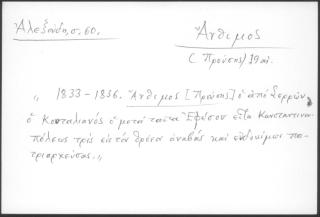 Ἀλεξάνδ, σ. 60.
Ἄνθιμος
( Προύσης) 19 αἰ.
„ 1833 - 1836. Ἄνθιμος [Προύσης] ὁ ἀπό Σερρῶν,
ὁ Κουταλιανός ὁ μετά ταῦτα Ἐφέσου εἶτα Κωνσταντινου-
πόλεως τρίς εἰς τόν θρόνον ἀναβάς καί εὐδοκίμως πα-
τριαρχεύσας.„